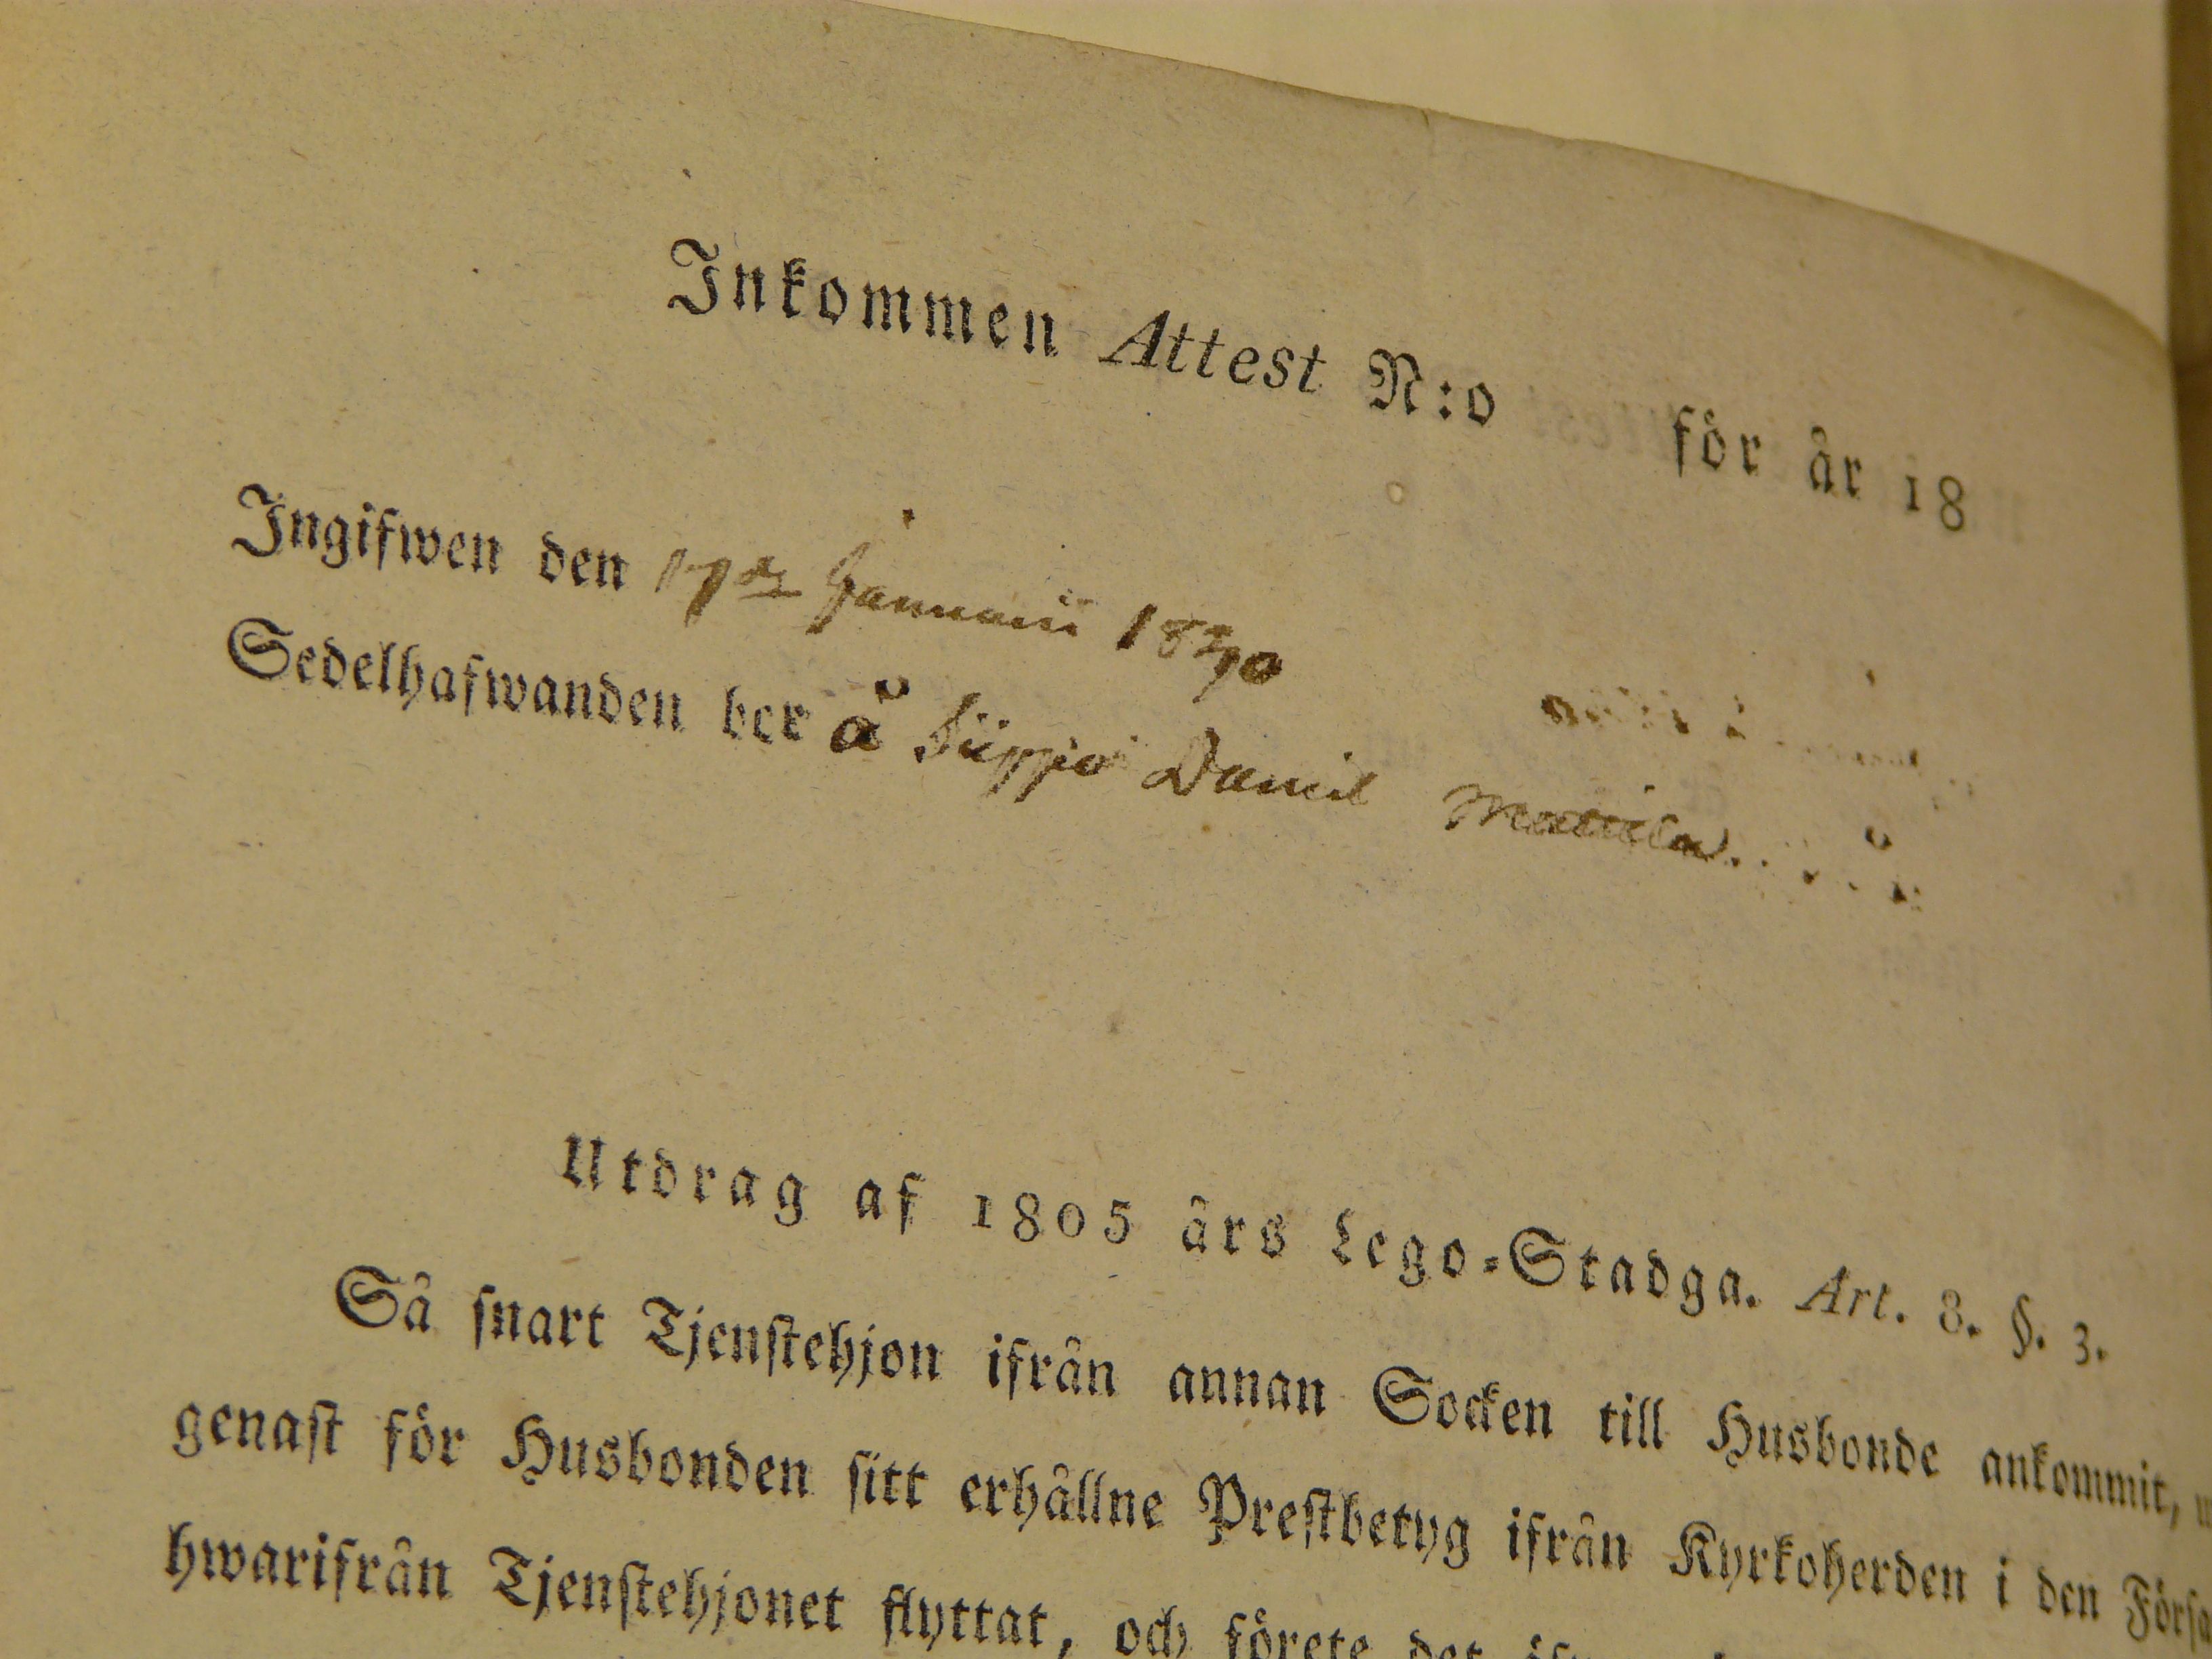 Inkommen Attest N:o för år 18
Ingifwen den 17de Januarii 1830
Sedelhafwanden ber å Daniel
Utdrag af 1805 års Lego-Stadga. Art. 8. §. 3.
Så snart Tjenstehjon ifrån annan Socken till Husbonde ankommit,
genast för Husbonden sitt erhållne Prestbetyg ifrån Kyrkoherden i den
hwarifrån Tjenstehjonet flyttat, och förete det